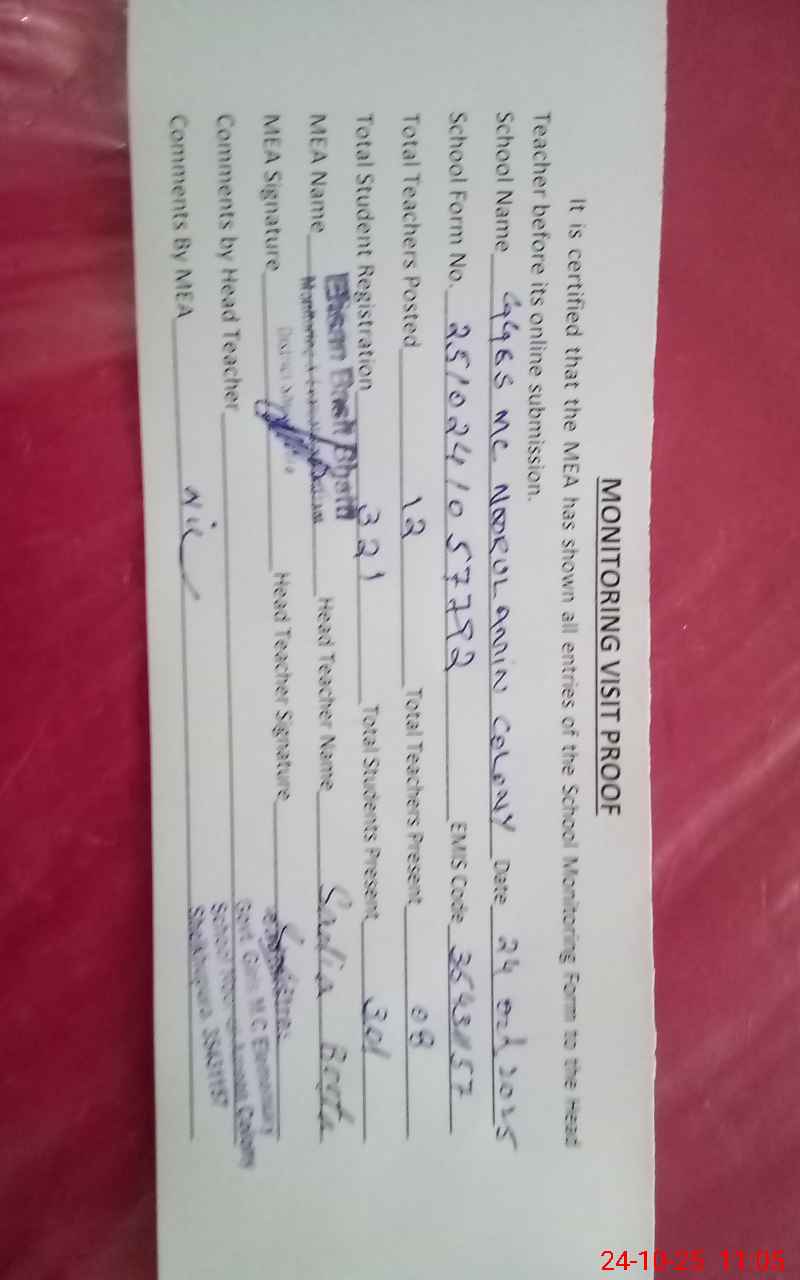 MONITORING VISIT PROOF
It is certified that the MEA has shown all entries of the School Monitoring Form to the Head
Teacher before its online submission.
School Name GGES MC NOOROL AMIN COLONY Date 24 Oct 2025
School Form No. 2510241057792 EMIS Code 35431157
Total Teachers Posted 12 Total Teachers Present 08
Total Student Registration 321 Total Students Present 301
MEA Name Ehsan Elahi Bhatti Head Teacher Name Sadia
Monitoring
District
MEA Signature Head Teacher Signature
Comments by Head Teacher
Govt. Girls M.C Elementary
School Colony
Sheikhupura 35431157
Comments By MEA Nil
24-10-25 11:05